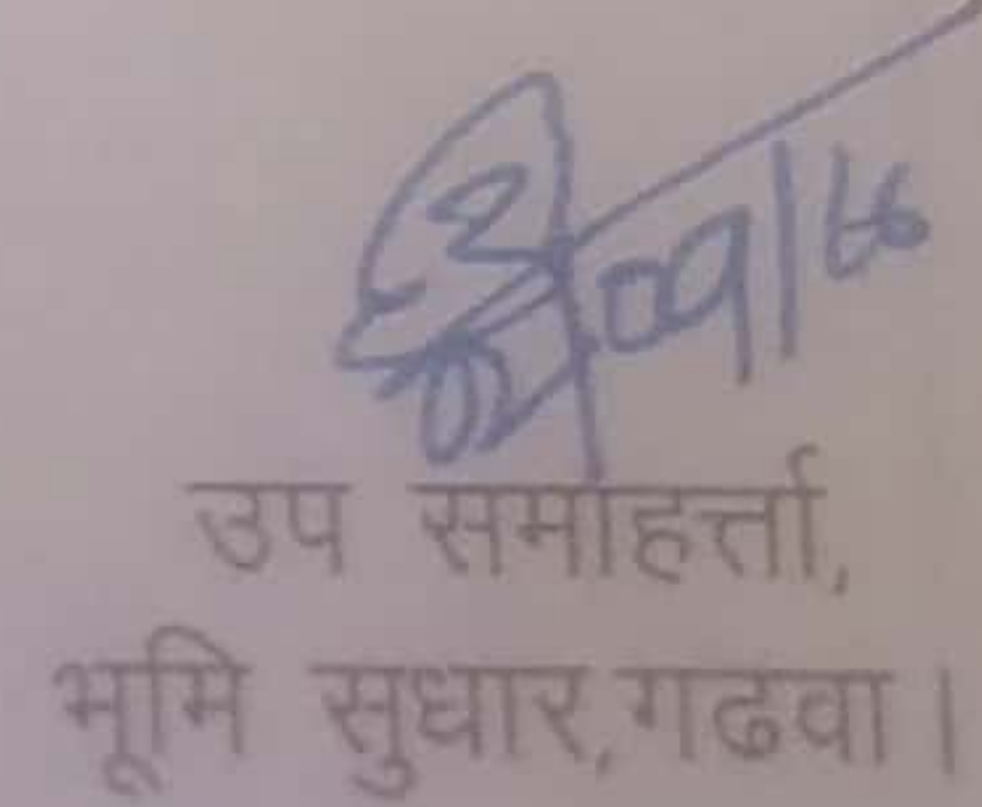 उप समाहर्त्ता,
भूमि सुधार,गढवा।